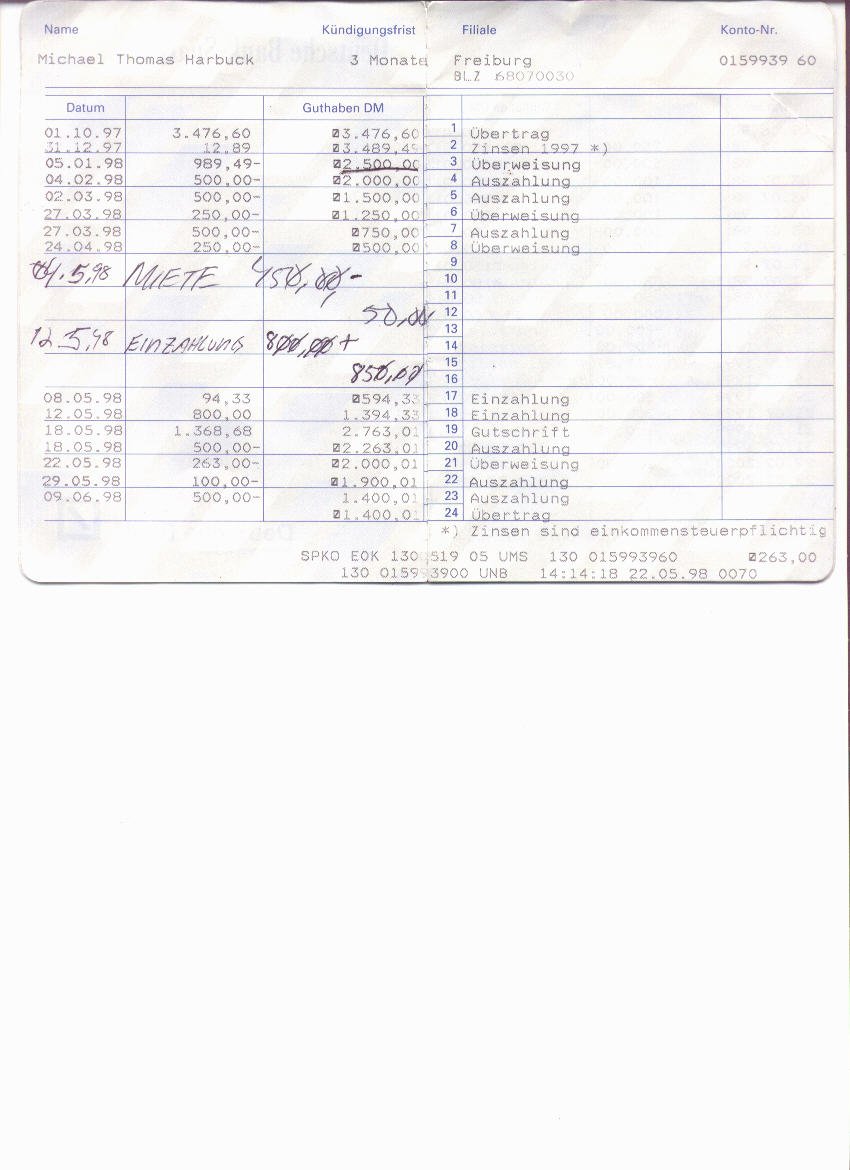 Name Kündigungsfrist Filiale Konto-Nr.
Michael Thomas Harbuck 3 Monate Freiburg 0159939 60
BLZ 68070030
Datum Guthaben DM
01.10.97 3.476,60 3.476,60 1 Übertrag
31.12.97 12,89 3.489,49 2 Zinsen 1997 *)
05.01.98 989,49- 2.500,00 3 Überweisung
04.02.98 500,00- 2.000,00 4 Auszahlung
02.03.98 500,00- 1.500,00 5 Auszahlung
27.03.98 250,00- 1.250,00 6 Überweisung
27.03.98 500,00- 750,00 7 Auszahlung
24.04.98 250,00- 500,00 8 Überweisung
9
04.5,98 MIETE 450,00,- 10
11
50,00 12
13
12.5,98 EINZAHLUNG 800,00+ 14
15
850,00 16
08.05.98 94,33 594,33 17 Einzahlung
12.05.98 800,00 1.394,33 18 Einzahlung
18.05.98 1.368,68 2.763,01 19 Gutschrift
18.05.98 500,00- 2.263,01 20 Auszahlung
22.05.98 263,00- 2.000,01 21 Überweisung
29.05.98 100,00- 1.900,01 22 Auszahlung
09.06.98 500,00- 1.400,01 23 Auszahlung
1.400,01 24 Übertrag
*) Zinsen sind einkommensteuerpflichtig
SPKO EOK 130 519 05 UMS 130 015993960 263,00
130 015993900 UNB 14:14:18 22.05.98 0070